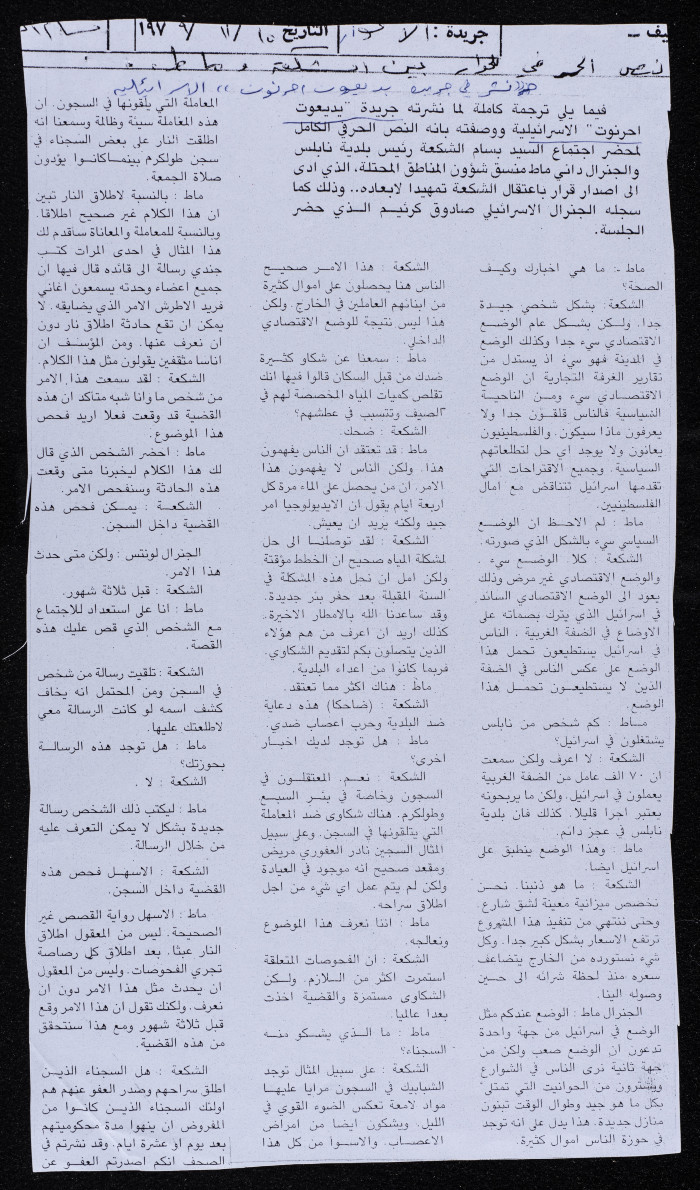 جريدة : الا
التاريخ ١٠ / ١١ / ١٩٧٩
نص الحر في للحوار بين الشكعة وماط
نشر في جريدة يديعوت احرنوت ،، الاسرائيلية
فيما يلي ترجمة كاملة لما نشرته جريدة "يديعوت
احرنوت" الاسرائيلية ووصفته بانه النص الحرفي الكامل
لمحضر اجتماع السيد بسام الشكعة رئيس بلدية نابلس
والجنرال داني ماط منسق شؤون المناطق المحتلة، الذي ادى
الى اصدار قرار باعتقال الشكعة تمهيدا لابعاده.. وذلك كما
سجله الجنرال الاسرائيلي صادوق كرنيم الـذي حضر
الجلسة.
ماط : ما هي اخبارك وكيف
الصحة؟
الشكعة: بشكل شخصي جيـدة
جدا، ولـكن بشـكل عام الوضـع
الاقتصادي سيء جدا وكذلك الوضع
في المدينة فهو سيء اذ يستدل من
تقارير الغرفة التجارية ان الوضع
الاقتصـادي سيء ومـن الناحيـة
السياسية فالناس قلقـون جدا ولا
يعرفون ماذا سيكون. والفلسطينيون
يعانون ولا يوجد اي حل لتطلعاتهم
السياسية. وجميع الاقتراحات التي
تقدمها اسرائيل تتناقض مع امال
الفلسطينيين.
ماط : لم الاحـظ ان الوضـع
السياسي سيء بالشكل الذي صورته.
الشكعة : كلا. الوضـع سيء .
والوضع الاقتصادي غير مرض وذلك
يعود الى الوضع الاقتصادي السائد
في اسرائيل الذي يترك بصماته على
الاوضاع في الضفة الغربية ، الناس
في اسرائيل يستطيعون تحمل هذا
الوضع على عكس الناس في الضفة
الذين لا يستطيعـون تحمـل هذا
الوضع.
مـاط : كم شخص من نابلس
يشتغلون في اسرائيل؟
الشكعة : لا اعرف ولكن سمعت
ان ٧٠ الف عامل من الضفة الغربية
يعملون في اسرائيل. ولكن ما يربحونه
يعتبر اجرا قليلا. كذلك فان بلدية
نابلس في عجز دائم.
ماط : وهذا الوضع ينطبق على
اسرائيل ايضا.
الشكعة : ما هو ذنبنا. نحـن
نخصص ميزانية معينة لشق شارع.
وحتى ننتهي من تنفيذ هذا المشروع
ترتفع الاسعار بشكل كبير جدا. وكل
شيء نستورده من الخارج يتضاعف
سعره منذ لحظة شرائه الى حـين
وصوله الينا.
الجنرال ماط : الوضع عندكم مثل
الوضع في اسرائيل من جهة واحدة
تدعون ان الوضع صعب ولكن من
جهة ثانية نرى الناس في الشوارع
ويشترون من الحوانيت التي تمتلىء
بكل ما هو جيد وطوال الوقت تبنون
منازل جديدة. هذا يدل على انه توجد
في حوزة الناس اموال كثيرة.
الشكعة : هذا الامـر صحيـح
الناس هنا يحصلون على اموال كثيرة
من ابنائهم العاملين في الخارج. ولكن
هذا ليس نتيجة للوضع الاقتصادي
الداخلي.
ماط : سمعنا عن شكاو كثـيرة
ضدك من قبل السكان قالوا فيها انك
تقلص كميات المياه المخصصة لهم في
الصيف وتتسبب في عطشهم؟
الشكعة : ضحك.
ماط: قد تعتقد ان الناس يفهمون
هذا. ولكن الناس لا يفهمون هذا
الامر. ان من يحصل على الماء مرة كل
اربعة ايام يقول ان الايديولوجيا امر
جيد ولكنه يريد ان يعيش.
الشكعة : لقد توصلنا الى حل
لمشكلة المياه صحيح ان الخطط مؤقتة
ولكن امل ان نحل هذه المشكلة في
السنة المقبلة بعد حفر بئر جديدة.
وقد ساعدنا الله بالامطار الاخيرة.
كذلك اريد ان اعرف من هم هؤلاء
الذين يتصلون بكم لتقديم الشكاوي.
فربما كانوا من اعداء البلدية.
ماط : هناك اكثر مما تعتقد.
الشكعة : (ضاحكا) هذه دعاية
ضد البلدية وحرب اعصاب ضدي.
ماط : هل توجد لديك اخبـار
اخرى؟
الشكعة : نعـم. المعتقلـون في
السجون وخاصة في بئـر السبـع
وطولكرم. هناك شكاوى ضد المعاملة
التي يتلقونها في السجن. وعلى سبيل
المثال السجين نادر العفوري مريض
ومقعد صحيح انه موجود في العيادة
ولكن لم يتم عمل اي شيء من اجل
اطلاق سراحه.
ماط : اننا نعرف هذا الموضوع
ونعالجه.
الشكعة : ان الفحوصات المتعلقة
استمرت اكثر من اللازم. ولـكن
الشكاوى مستمرة والقضية اخذت
بعدا عالميا.
ماط : ما الـذي يشـكو منـه
السجناء؟
الشكعة : على سبيل المثال توجد
الشبابيك في السجون مرايا عليهـا
مواد لامعة تعكس الضوء القوي في
الليل. ويشكون ايضا من امراض
الاعصـاب. والاسـوأ من كل هذا
المعاملة التي يلقونها في السجون. ان
هذه المعاملة سيئة وظالمة وسمعنا انه
اطلقت النار على بعض السجناء في
سجن طولكرم بينمـا كانوا يؤدون
صلاة الجمعة.
ماط : بالنسبة لاطلاق النار تبين
ان هذا الكلام غير صحيح اطلاقا.
وبالنسبة للمعاملة والمعاناة ساقدم لك
هذا المثال في احدى المرات كتـب
جندي رسالة الى قائده قال فيها ان
جميع اعضاء وحدته يسمعون اغاني
فريد الاطرش الامر الذي يضايقه. لا
يمكن ان تقع حادثة اطلاق نار دون
ان نعرف عنها. ومن المؤسـف ان
اناسا مثقفين يقولون مثل هذا الكلام.
الشكعة : لقد سمعت هذا الامر
من شخص ما وانا شبه متاكد ان هذه
القضية قد وقعت فعلا اريد فحص
هذا الموضوع.
ماط : احضر الشخص الذي قال
لك هذا الكلام ليخبرنا متى وقعت
هذه الحادثة وسنفحص الامر.
الشكعـة : يمـكن فحص هذه
القضية داخل السجن.
الجنرال لونتس : ولكن متى حدث
هذا الامر.
الشكعة : قبل ثلاثة شهور.
ماط : انا على استعداد للاجتماع
مـع الشخص الذي قص عليك هذه
القصة.
الشكعة : تلقيت رسالة من شخص
في السجن ومن المحتمل انه يخاف
كشف اسمه لو كانت الرسالة معي
لاطلعتك عليها.
ماط : هل توجد هذه الرسالـة
بحوزتك؟
الشكعة : لا .
ماط : ليكتب ذلك الشخص رسالة
جديدة بشكل لا يمكن التعرف عليه
من خلال الرسالة.
الشكعة : الاسهـل فحص هذه
القضية داخل السجن.
ماط : الاسهل رواية القصص غير
الصحيحة. ليس من المعقول اطلاق
النار عبثا. بعد اطلاق كل رصاصة
تجري الفحوصات. وليس من المعقول
ان يحدث مثل هذا الامر دون ان
نعرف. ولكنك تقول ان هذا الامر وقع
قبل ثلاثة شهور ومع هذا سنتحقق
من هذه القضية.
الشكعة : هل السجناء الذيـن
اطلق سراحهم وصدر العفو عنهم هم
اولئك السجناء الذيـن كانـوا من
المفروض ان ينهوا مدة محكوميتهم
بعد يوم او عشرة ايام. وقد نشرتم في
الصحف انكم اصدرتم العفـو عن